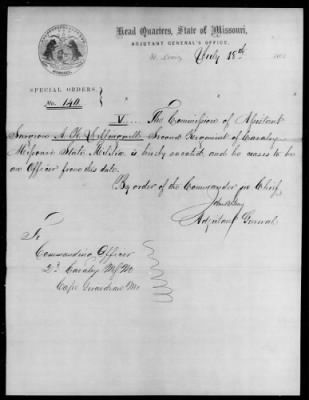 Head Quarters, State of Missouri,
ADJUTANT GENERAL'S OFFICE,
St. Louis July 18th 186
SPECIAL ORDERS,
No. 140
V The Commission of Assistant
Surgeon A. H. Second Regiment of Cavalry
Missouri State Militia is hereby vacated, and he ceases to be
an Officer from this date.
By order of the Commander in Chief,
John B Gray
Adjutant General
To
Commanding Officer
2d Cavalry M.S.M.
Cape Girardeau Mo